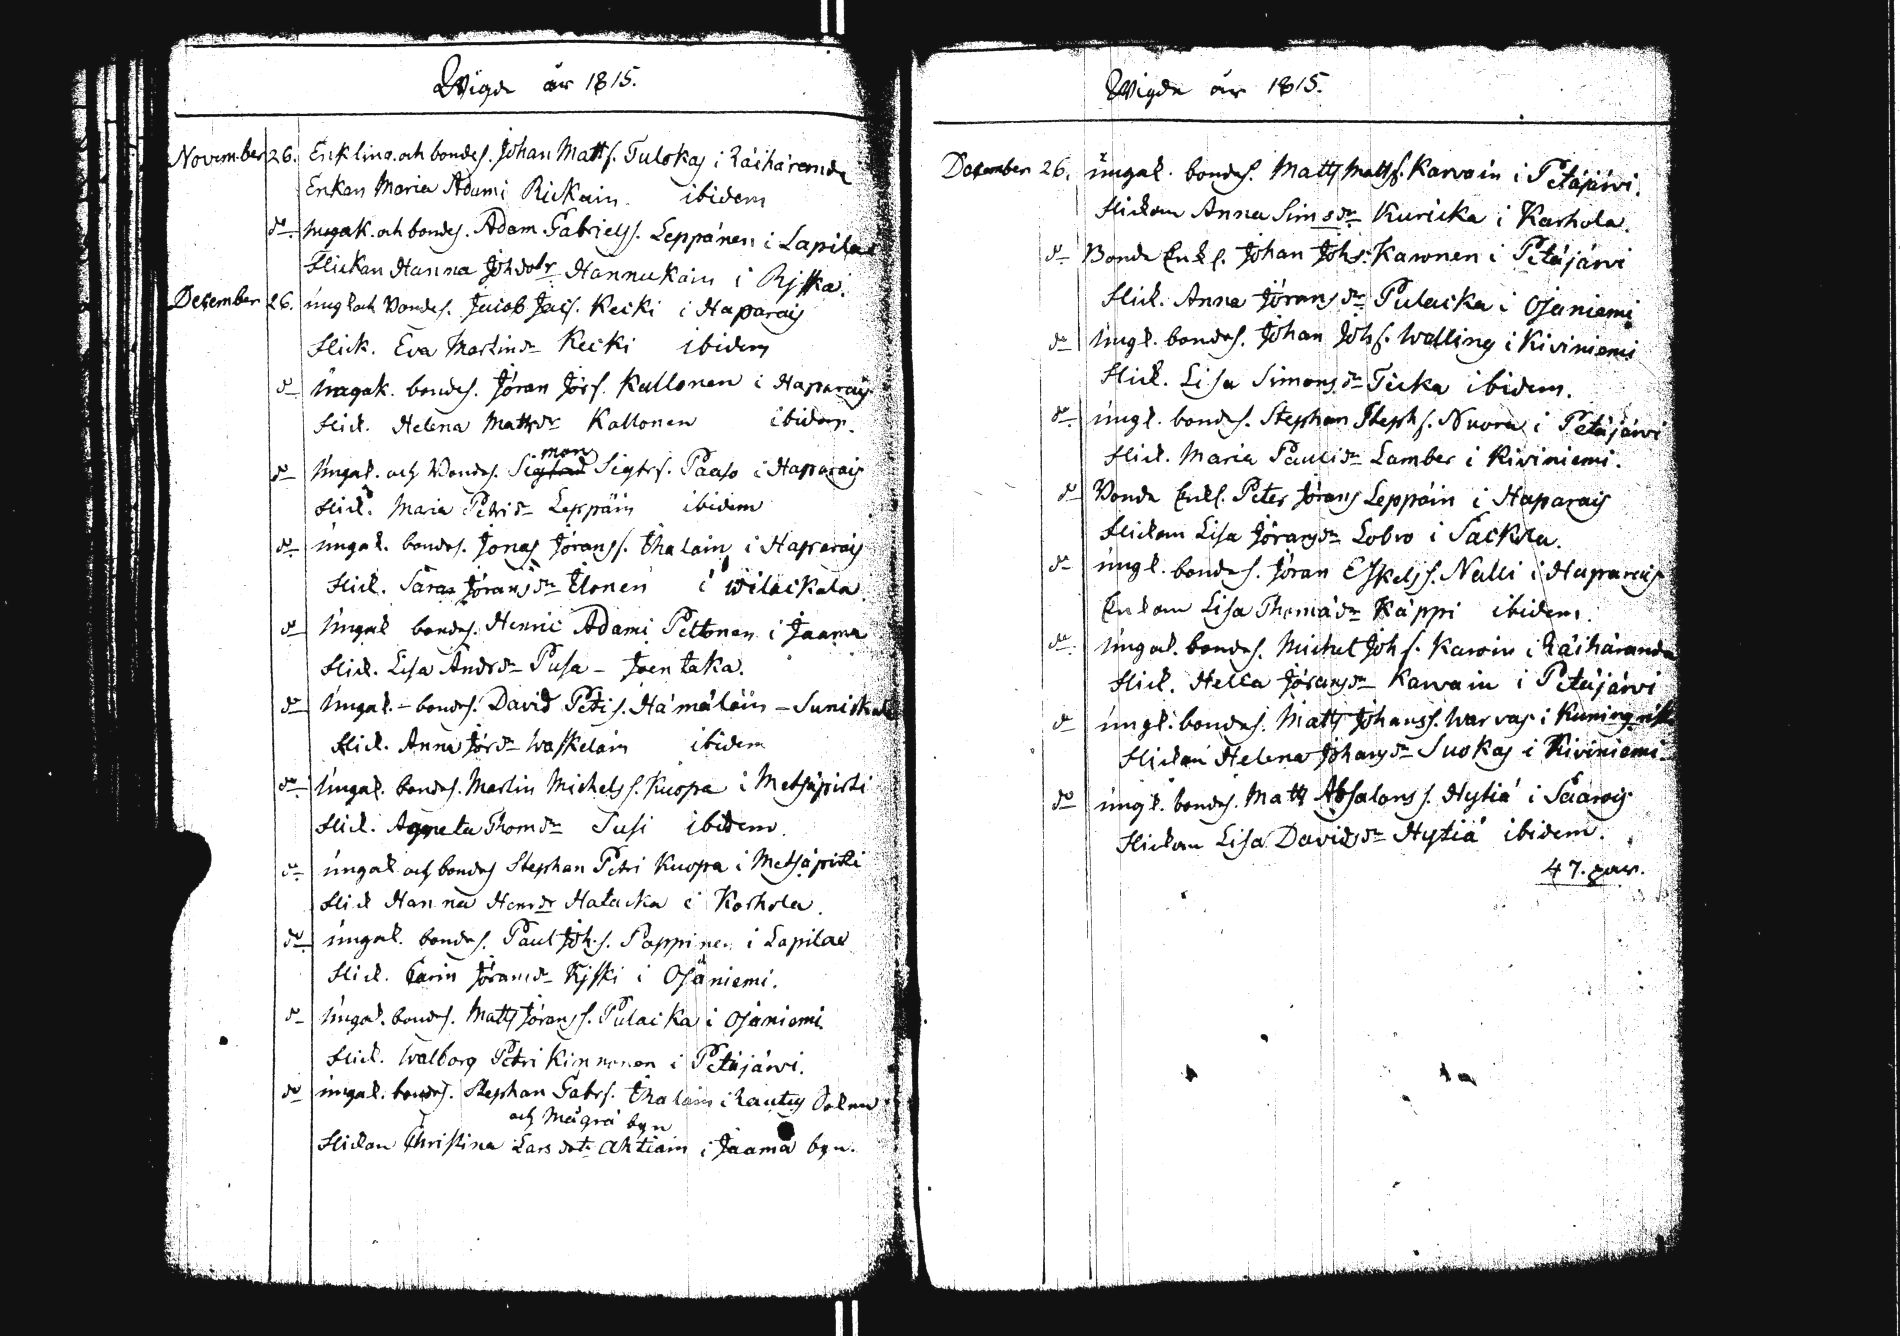 Wigde år 1815.
November 26. Enkling. och bondes. Johan Matts. Tulokas i Räihäranda
Enkan Maria Adami Rickain. ibidem
do ungak. och bondes. Adam Gabrielss. Leppänen i Lapilax
Flickan Hanna Joh dotr Hannukain i Rjska.
December 26. ungk och Bondes. Jacob Jacs. Kecki i Haparais
Flick. Eva Martin dr Kecki ibidem
do Ungak. bondes. Jöran Jörs. Kallonen i Haparais
Flick. Helena Matts dr Kallonen ibidem.
do Ungak. och Bondes. Sigman Sigfrs. Paaso i Haparais
Flick. Maria Petri dr Leppäin ibidem
do ungak. bondes. Jonas Jöranss. Ihalain i Haparais
Flick. Sara Jörans dr Ilonen i Wilackala
do Ungak bondes. Henric Adami Peltonen i Jaama
Flick. Lisa Andrs dr Pusa - Joentaka.
do Ungak. - bondes. David Petis. Hämäläin - Sunikala
Flick. Anna Jörs dr Waskelain ibidem
do Ungak. bondes. Martin Michelss. Kuopa i Metsäpirti
Flick. Agneta Thoms dr Susi ibidem.
do ungak. och bondes Stephan Petri Kuopa i Metsäpirti
Flick Hanna Henr dr Hatacka i Korhola.
do ungak. bondes. Paul Joh.s. Poppinen i Lapilax
Flick. Carin Jörans dr Kiski i Osaniemi.
do Ungak. bondes. Matts Jöranss. Pulacka i Ojaniemi
Flick. Walborg Petri Kinnonen i Petäjärvi.
do ungak. bondes. Stephan Gabrs. Ihalain i Rautus Sokn
och Mägrä byn
Flickan Christina Lars dotr Ahtiain i Jaama byn.
Wigde år 1815.
December 26. ungak. bondes. Matts Mattss. Karvain i Petäjärvi.
Flickan Anna Sims dr Kuricka i Karhola.
do Bonde Enkl. Johan Johs. Karvonen i Petäjärvi
Flick. Anna Jörans dr Pulacka i Ojaniemi
do Ungk. bondes. Johan Johs. Walling i Kiviniemi
Flick. Lisa Simons dr Ticka ibidem.
do ungk. bondes. Stephan Stephs. Nuora i Petäjärvi
Flick. Maria Pauli dr Lamber i Kiviniemi.
do Bonde Enkl. Peter Jörans Leppäin i Haparais
Flickan Lisa Jörans dr Lobro i Sackola.
do ungk. bondes. Jöran Eskelss. Nalli i Haparais
Enkan Lisa Thoma dr Käppi ibidem.
do Ungak. bondes. Michel Johs. Karvin i Räihäranda
Flick. Hella Jörans dr Karvain i Petäjärvi
do ungk. bondes. Matts Johanss. Warvas i
Flickan Helena Johans dr Suokas i Kiviniemi
do ungk. bondes. Matts Absalons s. Hytiä i Saarois
Flickan Lisa Davids dr Hytiä ibidem.
47. par.